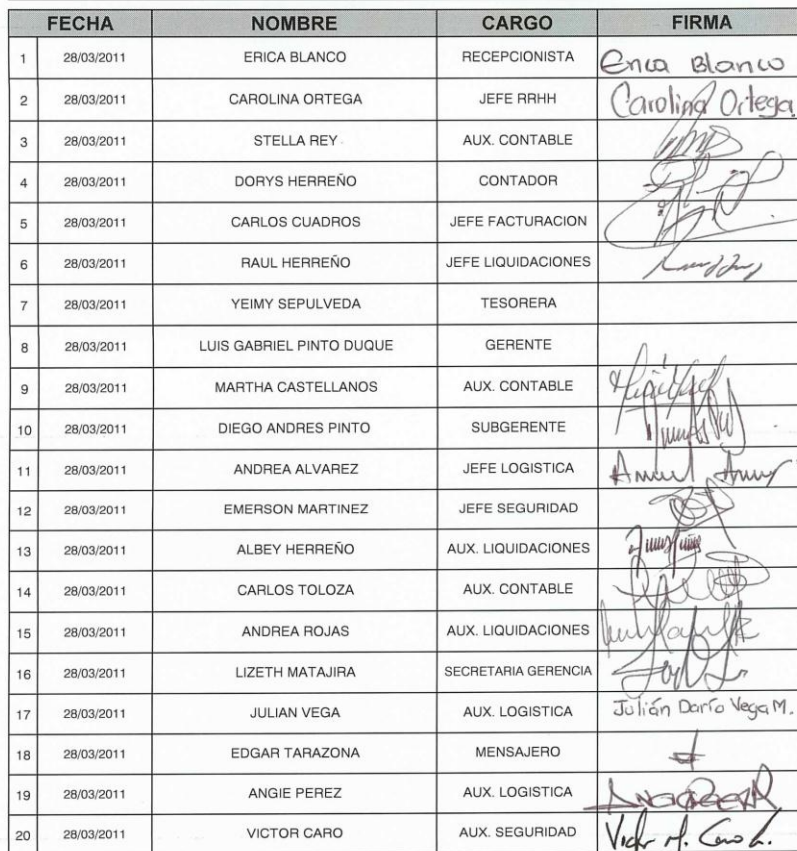 FECHA NOMBRE CARGO FIRMA
1 28/03/2011 ERICA BLANCO RECEPCIONISTA Erica Blanco
2 28/03/2011 CAROLINA ORTEGA JEFE RRHH Carolina Ortega.
3 28/03/2011 STELLA REY AUX. CONTABLE
4 28/03/2011 DORYS HERREÑO CONTADOR
5 28/03/2011 CARLOS CUADROS JEFE FACTURACION
6 28/03/2011 RAUL HERREÑO JEFE LIQUIDACIONES
7 28/03/2011 YEIMY SEPULVEDA TESORERA
8 28/03/2011 LUIS GABRIEL PINTO DUQUE GERENTE
9 28/03/2011 MARTHA CASTELLANOS AUX. CONTABLE
10 28/03/2011 DIEGO ANDRES PINTO SUBGERENTE
11 28/03/2011 ANDREA ALVAREZ JEFE LOGISTICA
12 28/03/2011 EMERSON MARTINEZ JEFE SEGURIDAD
13 28/03/2011 ALBEY HERREÑO AUX. LIQUIDACIONES
14 28/03/2011 CARLOS TOLOZA AUX. CONTABLE
15 28/03/2011 ANDREA ROJAS AUX. LIQUIDACIONES
16 28/03/2011 LIZETH MATAJIRA SECRETARIA GERENCIA
17 28/03/2011 JULIAN VEGA AUX. LOGISTICA Julián Darío Vega M.
18 28/03/2011 EDGAR TARAZONA MENSAJERO
19 28/03/2011 ANGIE PEREZ AUX. LOGISTICA
20 28/03/2011 VICTOR CARO AUX. SEGURIDAD Victor M. Caro